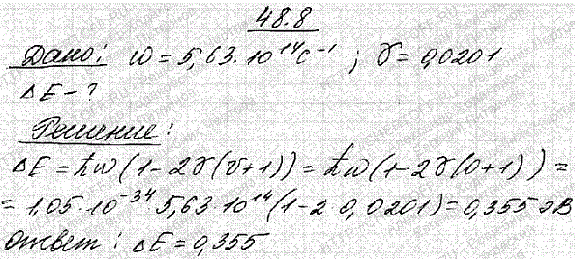 48.8
Дано: ω = 5,63·10¹⁴ с⁻¹ ; γ = 0,0201
ΔE - ?
Решение:
ΔE = ħω(1-2γ(v+1)) = ħω(1-2γ(0+1)) =
= 1,05·10⁻³⁴ 5,63·10¹⁴(1-2 0,0201) = 0,355 эВ
Ответ: ΔE = 0,355